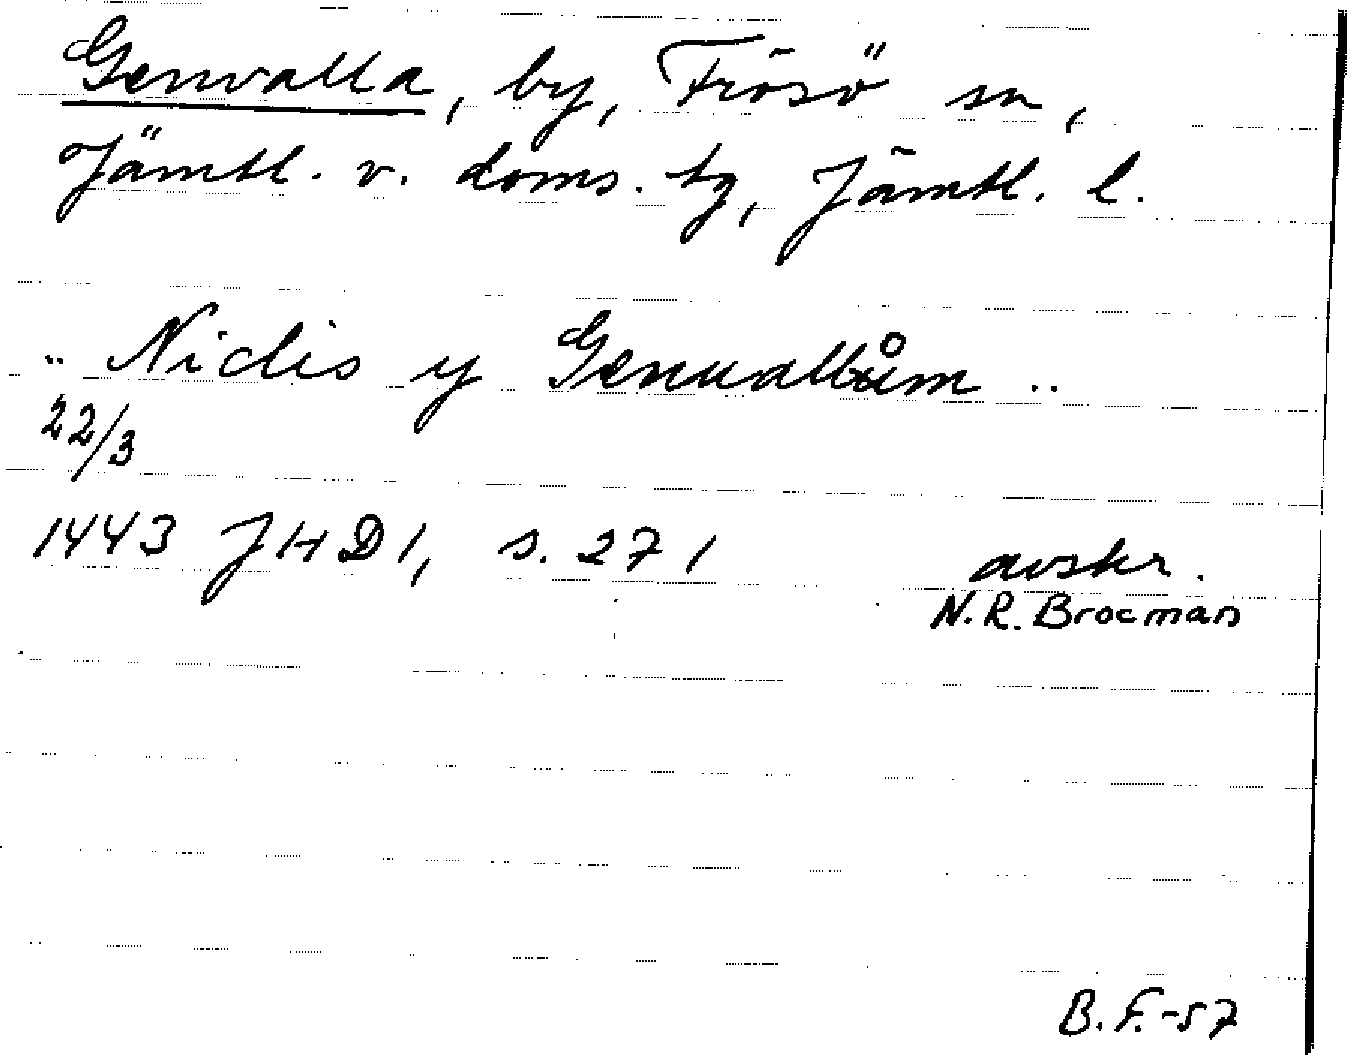 Genvalla, by, Frösö sn,
Jämtl. v. doms. tg, Jämtl. l.
.. Niclis y Genuallum ..
22/3
1443 JHD 1, s. 271
avskr.
N.R. Brocman
B.F.-57